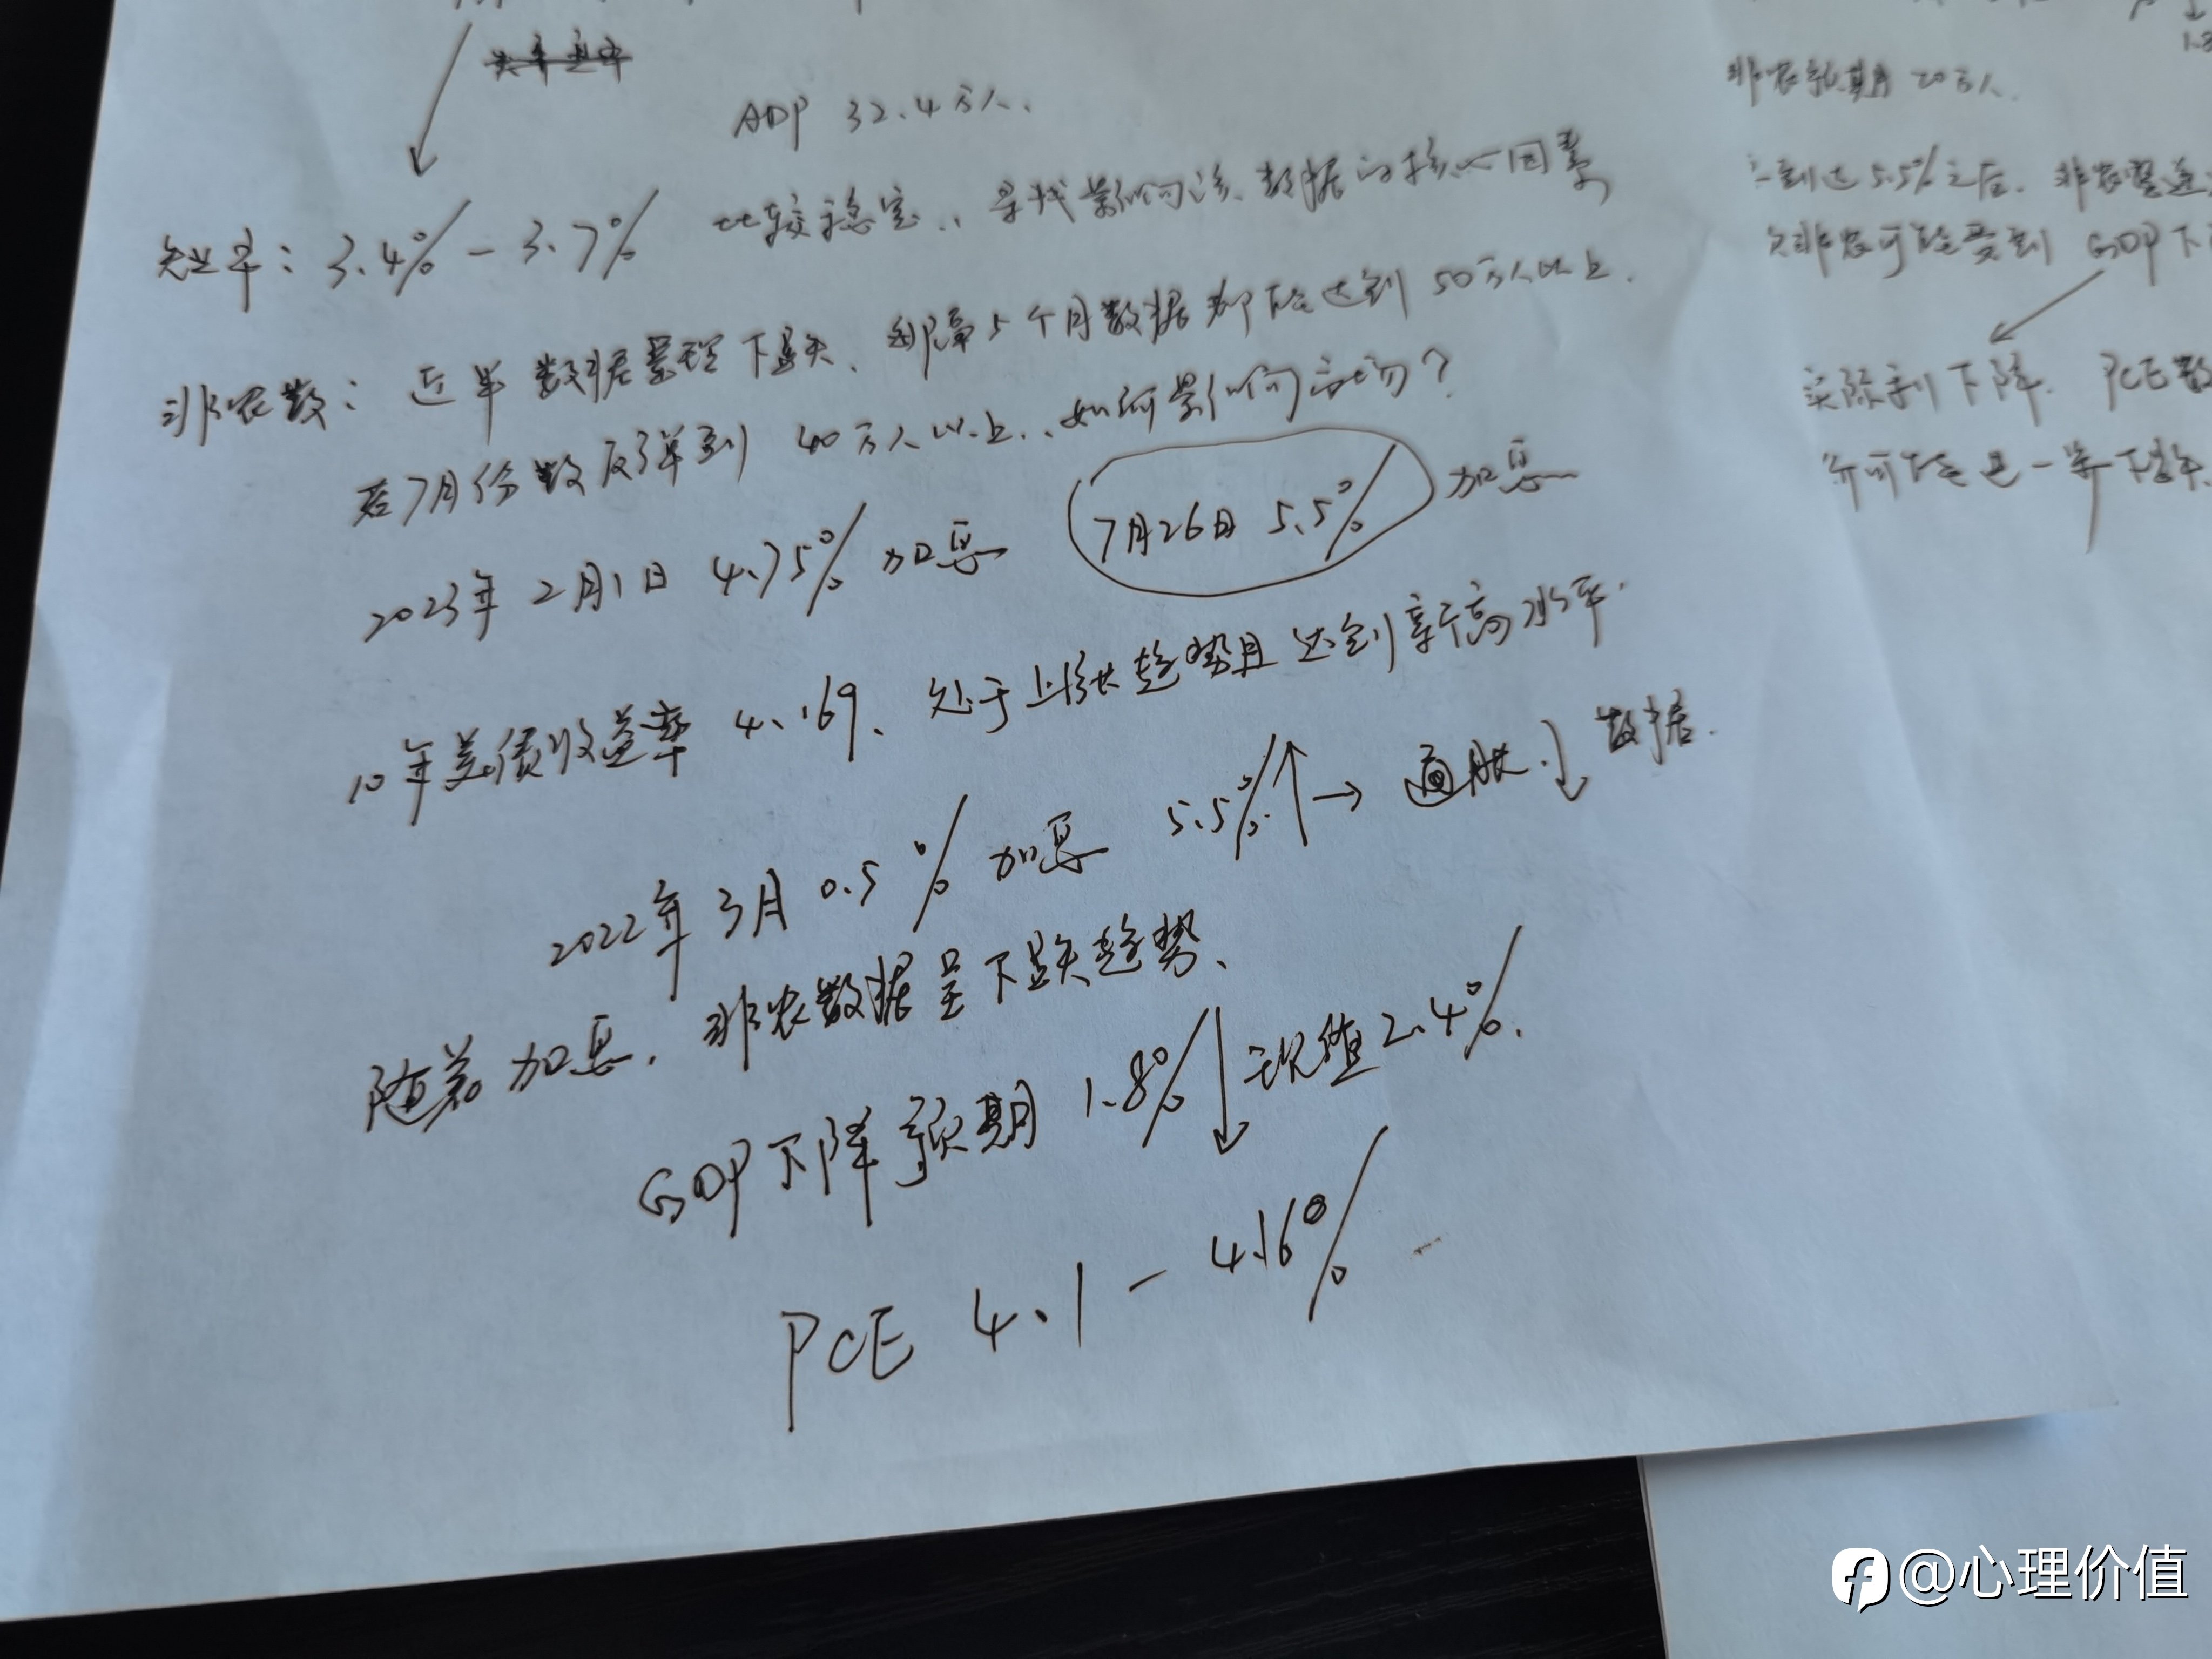 ADP 32.4万人.
失业率: 3.4% - 3.7% 比较稳定.. 寻找影响该数据的核心因素
非农数: 近半 数据呈现下跌、每隔5个月数据都能达到50万人以上.
若7月份数反弹到 40万人以上..如何影响市场?
2023年2月1日 4.75% 加息 7月26日 5.5% 加息
10年美债收益率 4.169、处于上涨趋势且达到新高水平.
2022年3月 0.5% 加息 5.5%↑→ 通胀.↓数据.
随着加息.非农数据呈下跌趋势、
GDP下降预期 1.8%↓现值2.4%.
PCE 4.1 - 4.16%
非农预期 20万人.
到达5.5%之后.非农
非农可能受到 GDP下
实际利 下降. PCE数
可能进一步下跌.
@心理价值